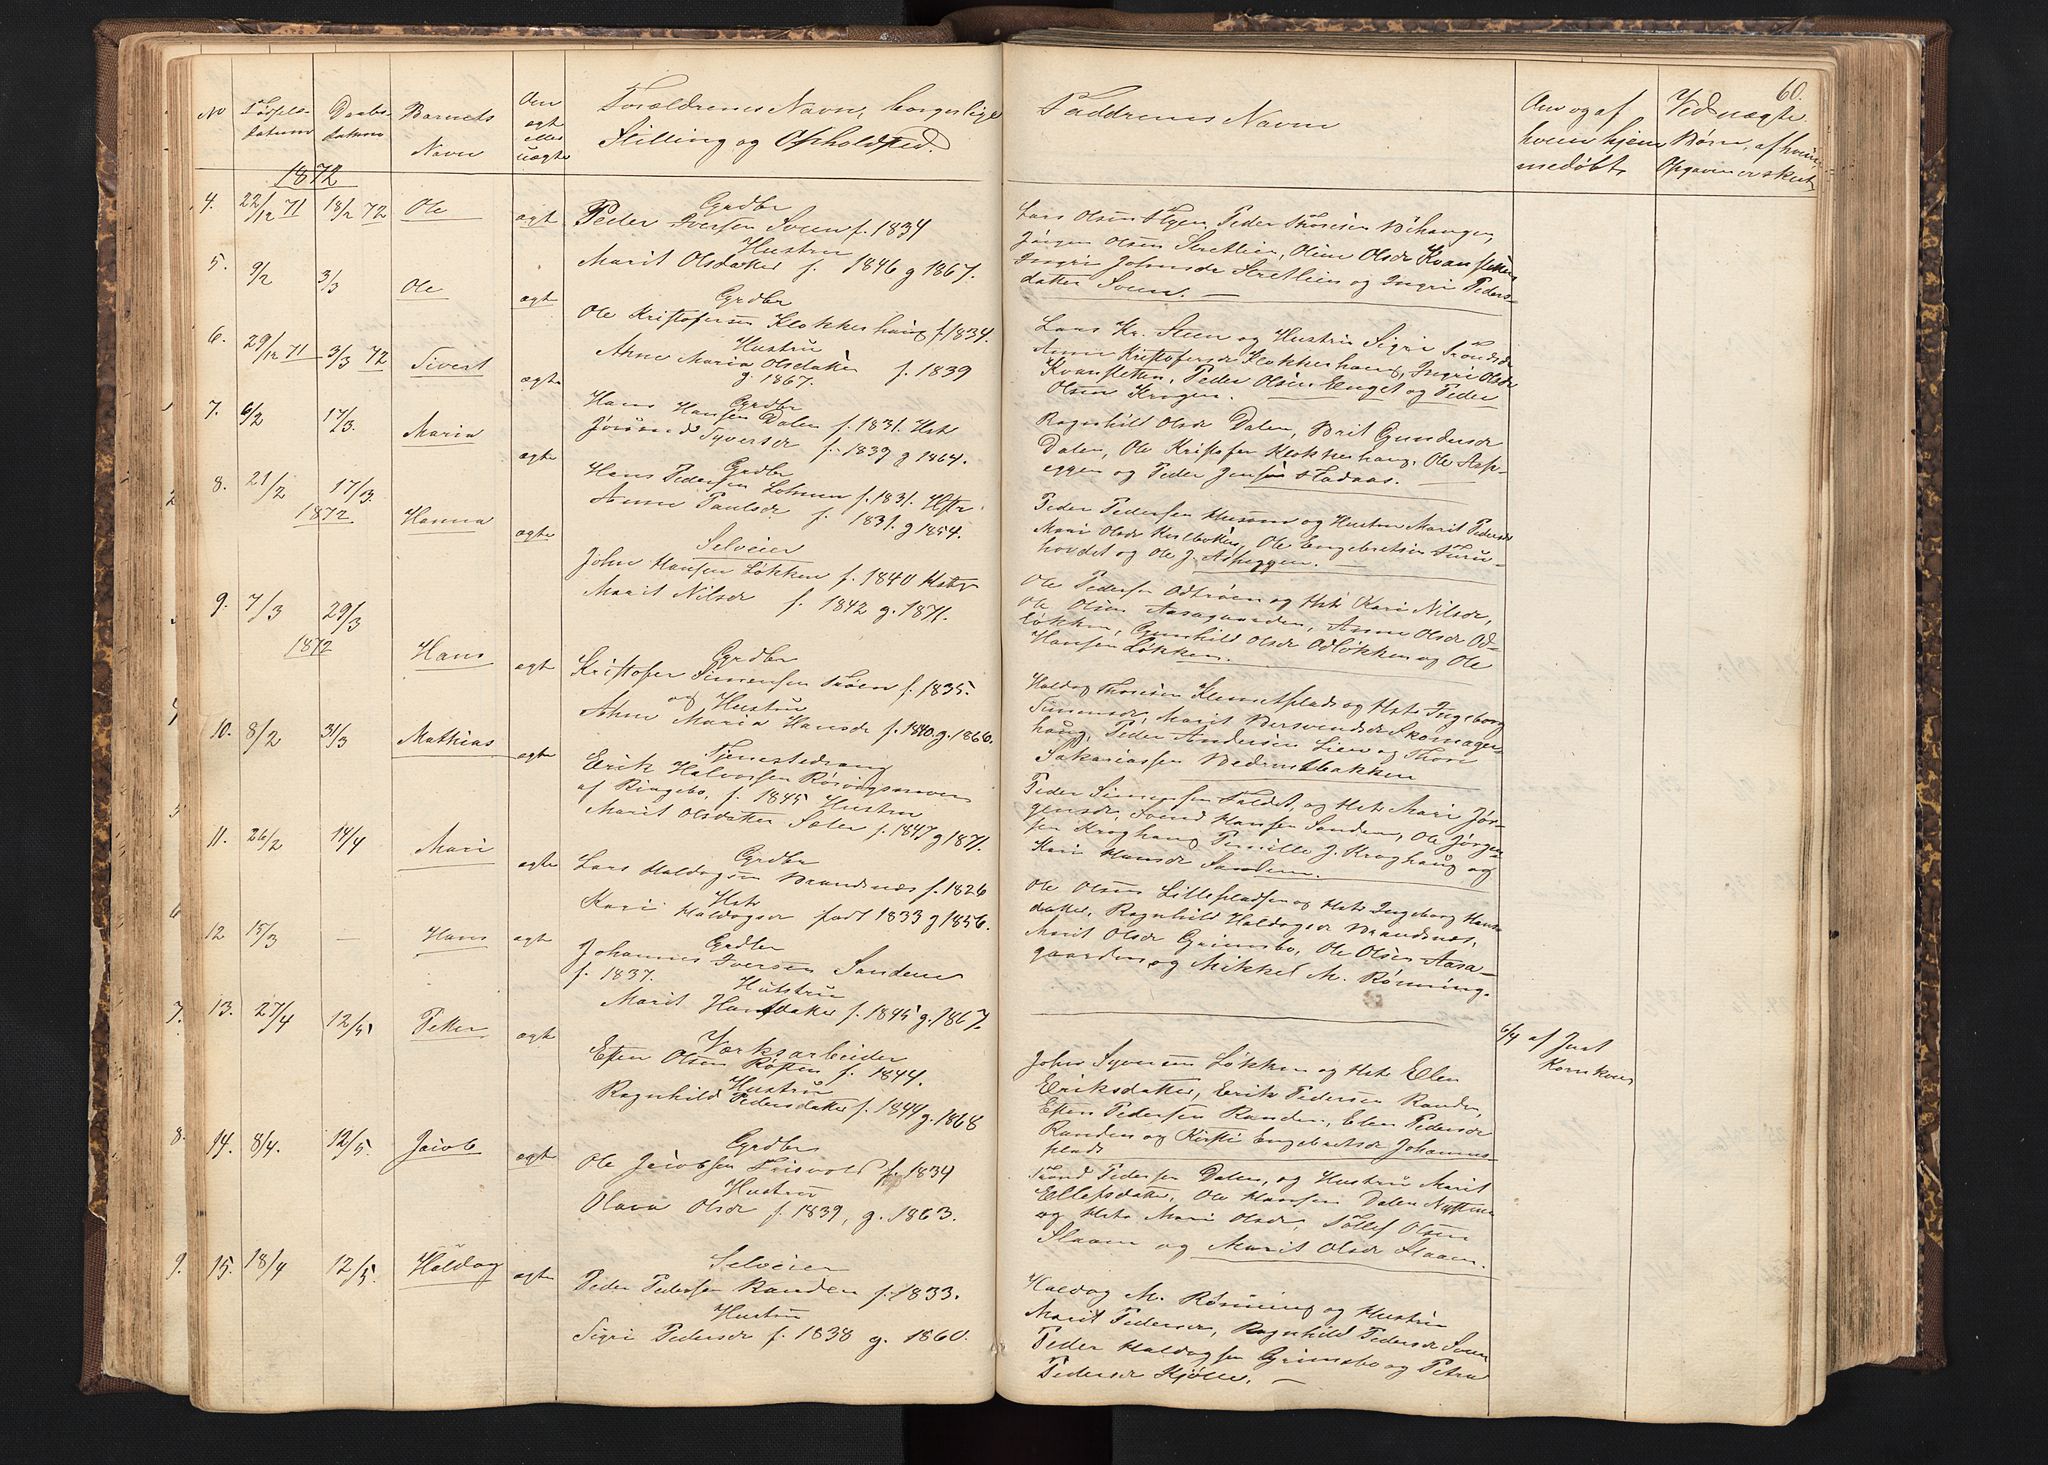 60.
No
Fødsels-
datum
Daabs-
datum
Barnets
Navn
Om
ægte
eller
uægte
Forældrenes Navn, borgerlige
Stilling og Opholdsted.
Faddrenes Navne
Om og af
hvem hjem-
medøbt
Ved uægte
Børn, af hvem
Opgaven er skeet
1872
4. 22/12 71 18/2 72 Ole ægte
Grdbr
Peder Iversen Sveen f. 1834
Hustru
Marit Olsdatter f. 1846 g 1867.
Lars Olsen Flyen, Peder
Jørgen Olsen Sletlien, Oline Olsdr Kvansletten
Ingri Johnsdr Sletlien og Ingri Peders-
datter Sveen. —
5. 9/2 3/3 Ole ægte
Grdbr
Ole Kristofersen Klokkerhaug f 1834.
Hustru
Anne Maria Olsdatter f. 1839
g. 1867.
Lars Kr. Steen og Hustru Sigri Trondsdr
Anne Kristofersdr Klokkerhaug, Ingri Olsdr
Kvansletten, Peder Olsen Enget og Peder
Olsen Krogen.
6. 29/12 71 3/3 72 Sivert ægte
Grdbr
Hans Hansen Dalen f. 1831. Hstr
Jørand Syversdr f. 1839 g 1864.
Ragnhild Olsdr Dalen, Brit Gundersdr
Dalen, Ole Kristofer Klokkerhaug, Ole Asp-
eggen og Peder Jensen Stadaas.
7. 6/2 17/3. Maria ægte
Grdbr
Hans Pedersen Lohnen f. 1831. Hstr
Anne Paulsdr f. 1831. g 1854.
Peder Pedersen og Hustru Marit Pedersdr
Mari Olsdr Ole Engebretsen Furu-
hovdet og Ole J. Aspeggen. —
8. 21/2 17/3. Hanna ægte
1872
Selveier
John Hansen Løkken f. 1840 Hstr
Marit Nilsdr f. 1842 g. 1871.
Ole Pedersen Odtrøen og Hstr Kari Nilsdr,
Ole Olsen Aasagaarden, Anne Olsdr Od-
løkken, Gunhild Olsdr Odløkken og Ole
Hansen Løkken.
9. 7/3 29/3 Hans ægte
1872
Grdbr
Kristofer Simensen Trøen f. 1835.
og Hustru
Anne Maria Hansdr f. 1840. g. 1866.
Haldog Thoresen Klemetsplads og Hstr Ingeborg
Simensdr, Marit Bersvendsdr Skomager-
haug, Peder Andersen Lien og Thore
Sakariassen Bedringsbakken
10. 8/2 31/3 Mathias ægte
Tjenestedreng
Erik Halvorsen
af Ringebo f. 1845 Hustru
Marit Olsdatter Sæter f. 1847 g 1871.
Peder Simensen Faldet, og Hstr Mari Jør-
gensdr, Svend Hansen Sanden, Ole Jørgen-
sen Kroghaug Pernille J. Kroghaug og
Kari Hansdr Sanden.
11. 26/2 14/4 Mari ægte
Grdbr
Lars Haldogsen Brandsnæs f. 1826
Hstr
Kari Haldogsdr født 1833 g 1856.
Ole Olsen Lillepladsen og Hstr Ingeborg Hans-
datter, Ragnhild Haldogsdr Brandsnæs,
Marit Olsdr Grimsbo, Ole Olsen Aasa-
gaarden og Mikkel M. Rønning.
12 15/3 — Hans ægte
Grdbr
Johannes Iversen Sanden
f. 1837. Hustru
Marit Hansdatter f. 1845 g. 1867.
6/4 af Just
Kornkven
13. 27/4 12/5 Petter ægte
Værksarbeider
Esten Olsen Røsten f. 1844.
Hustru
Ragnhild Pedersdatter f. 1844 g. 1868
John Syversen Løkken og Hstr Elen
Eriksdatter, Erik Pedersen Randen,
Esten Pedersen Randen, Elen Pedersdr
Randen og Kirsti Engebretsdr Johannes-
plads
14. 8/4. 12/5. Jacob ægte
Grdbr
Ole Jacobsen Frisvold f. 1834
Hustru
Olava Olsdr f. 1839, g. 1863.
Trond Pedersen Dalen, og Hustru Marit
Ellefsdatter, Ole Hansen Dalen
og Hstr Mari Olsdr, Tollef Olsen
Slaaen og Marit Olsdr Slaaen.
15. 18/4 12/5. Haldog ægte
Selveier
Peder Pedersen Randen f. 1833.
Hustru
Sigri Pedersdr f. 1838 g. 1860.
Haldog M. Rønning og Hustru
Marit Pedersdr, Ragnhild Pedersdr Sveen
Peder Haldogsen Grimsbo og Petra
Pedersdr Kjølle. —